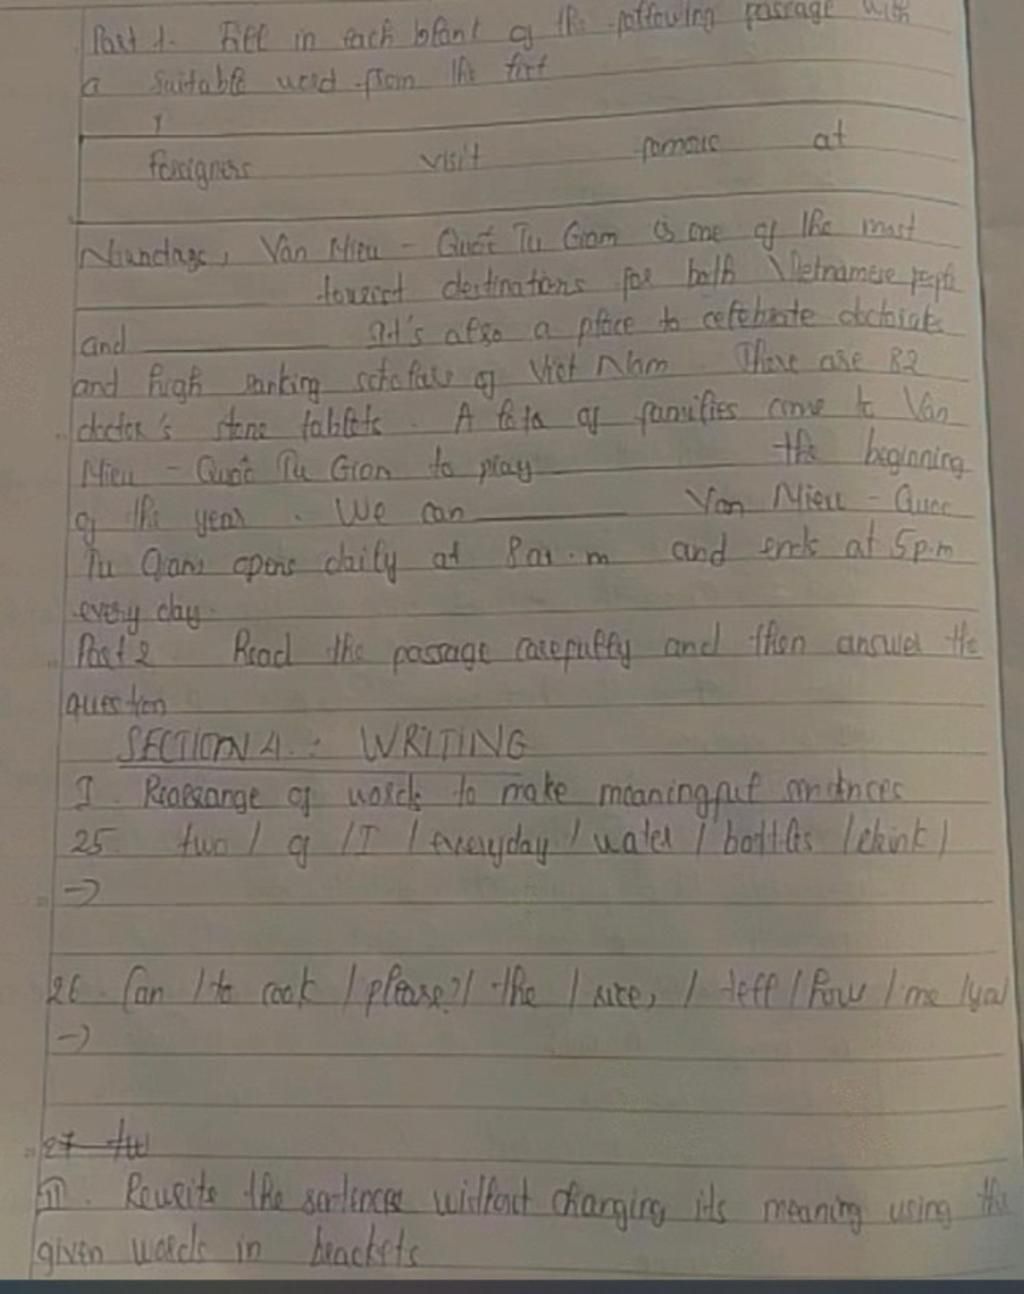 Part 1. Fill in each blant of the following passage with
a suitable word from the
foreigners visit famous at
Van Mieu - Quoc Tu Giam is one of the most
destinations for both Vietnamese people
and It's also a place to celebrate
and high ranking scholars of Viet Nam. There are 82
doctor's stone tablets. A lots of families come to Van
Mieu - Quoc Tu Giam to pray the beginning
of the year. We can Van Mieu - Quoc
Tu Giam opens daily at 8 a.m and ends at 5p.m
every day.
Part 2 Read the passage carefully and then answer the
question
SECTION 4. : WRITING
I. Rearrange of words to make meaningful sentences
25. two / of / I / everyday / water / bottles / drink /
->
26. Can / to cook / please? / the / rice, / tell / how / me / you
->
27
II. Rewrite the sentences without changing its meaning using the
given words in brackets